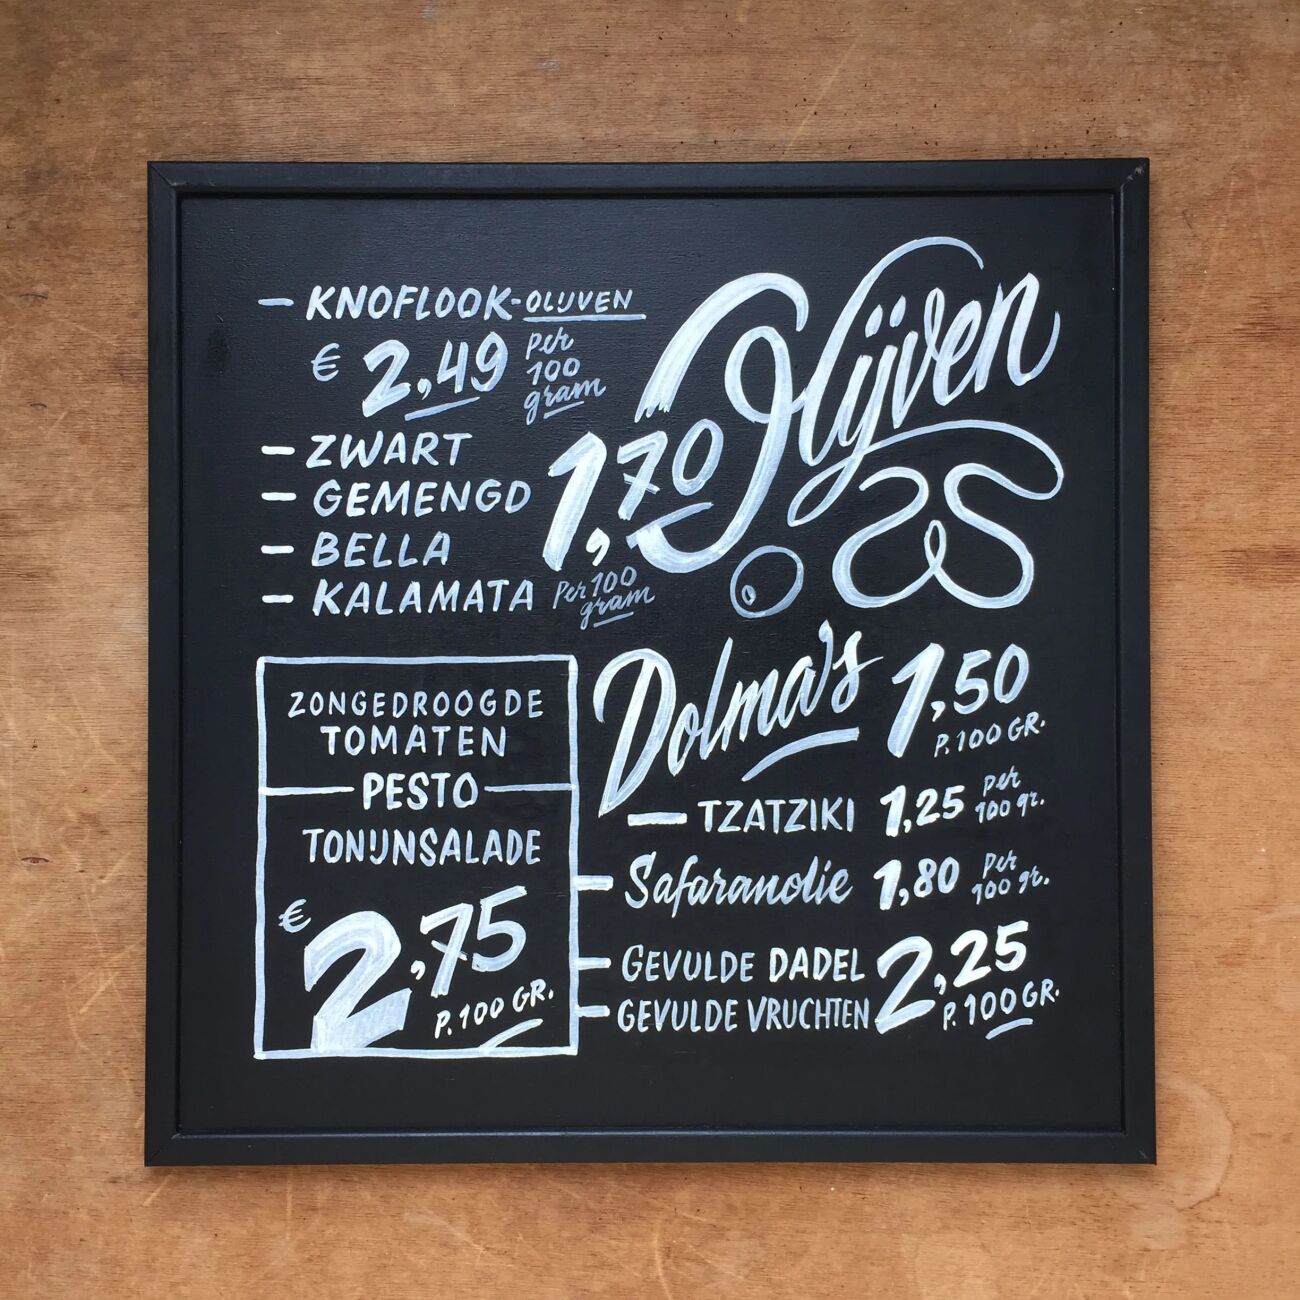 - KNOFLOOK-OLIJVEN
€ 2,49 per 100 gram
- ZWART
- GEMENGD
- BELLA
- KALAMATA
Olijven
1,70
Per 100 gram
ZONGEDROOGDE
TOMATEN
PESTO
TONIJNSALADE
€ 2,75
P. 100 GR.
Dolma's 1,50
P. 100 GR.
- TZATZIKI 1,25 per 100 gr.
- Safaranolie 1,80 per 100 gr.
- GEVULDE DADEL
- GEVULDE VRUCHTEN
2,25
P. 100 GR.